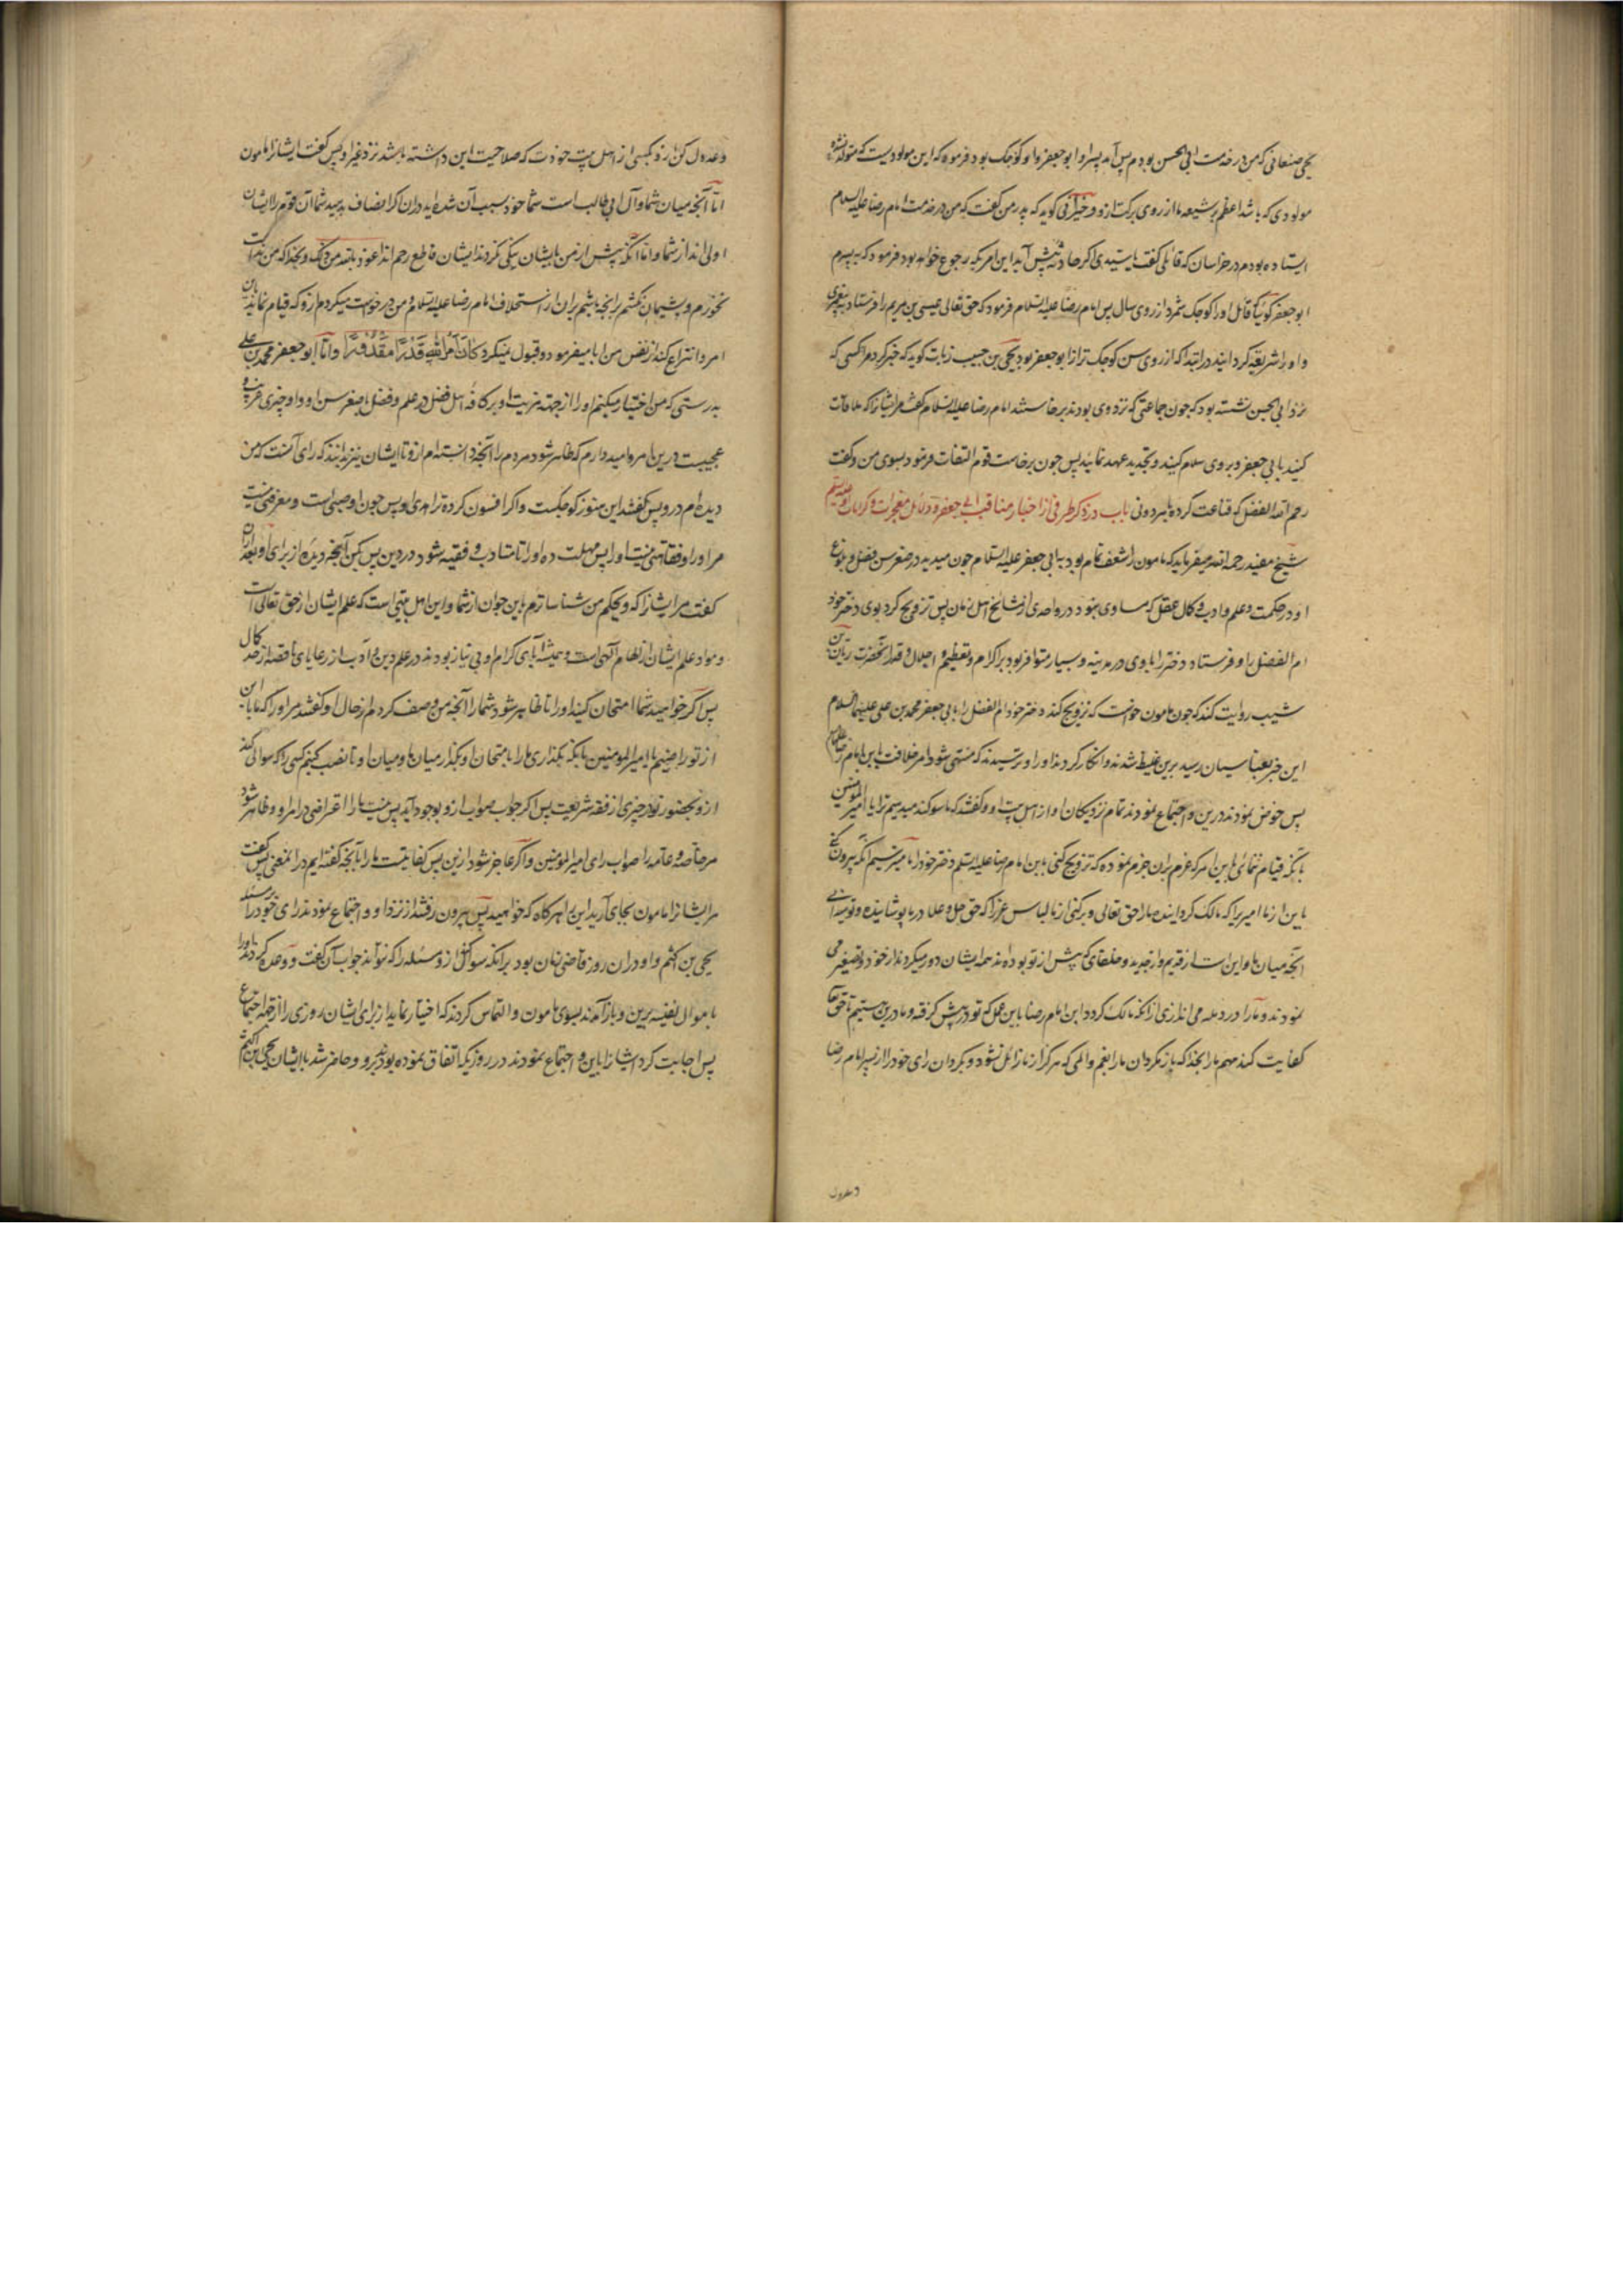 یحیی صنعانی که من در خدمت ابی الحسن بودم پس آمد پسر او ابو جعفر و او کوچک بود فرمود که این مولودیست که متولد نشده
مولودی که باشد اعظم بر شیعه ما از روی برکت ازو و خیرانی کوید که پدر من کفت که من در خدمت امام رضا علیه السلام
ایستاده بودم در خراسان که قائلی کفت یا سیدی اکر حادثه پیش آید این امر بکه رجوع خواهد بود فرمود که به پسرم
ابو جعفر کوئیا قائل او را کوچک شمرد از روی سال پس امام رضا علیه السلام فرمود که حق تعالی عیسی بن مریم را فرستاد به پیغمبری
و او را شریعة کردانید در ابتدا که از روی سن کوچک تر از ابو جعفر بود یحیی بن حبیب زیات کوید که خبر کرد مرا کسی که
نزد ابی الحسن نشسته بود که چون جماعتی که نزد وی بودند برخاستند امام رضا علیه السلام کفت مر ایشانرا که ملاقات
کنید با ابی جعفر و بر وی سلام کنید و تجدید عهد نمائید پس چون برخاست قوم التفات فرمود بسوی من و کفت
رحم الله المفضل که قناعت کرده بما بدونی باب در ذکر طرفی از اخبار مناقب ابی جعفر و دلائل معجزات و کرامات او علیه السلام
شیخ مفید رحمه الله میفرماید که مامون را شعف تمام بود به ابی جعفر علیه السلام چون میدید در صغر سن فضل و بلوغ
او در حکمت و علم و ادب و کمال عقل که مساوی نبود در و احدی از مشایخ اهل زمان پس تزویج کرد بوی دختر خود
ام الفضل را و فرستاد دختر را با وی در مدینه و بسیار متوافر بود بر اکرام و تعظیم و اجلال و قدر آنحضرت ریان بن
شبیب روایت کند که چون مامون خواست که تزویج کند دختر خود ام الفضل را با ابی جعفر محمد بن علی علیهما السلام
این خبر بعباسیان رسید برین غلیظ شدند و انکار کردند او را و ترسیدند که منتهی شود امر خلافت باین امام رضا علیه السلام
پس خوض نمودند درین و اجتماع نمودند تمام نزدیکان او از اهل بیت او و کفتند که ما سوکند میدهیم ترا یا امیر المومنین
بآنکه قیام ننمائی باین امر که عزم بران جزم نموده که تزویج کنی بابن امام رضا علیه السلام دختر خود را ما میترسیم آنکه بیرون کنی
باین از ما امیریرا که مالک کردانیده ما را حق تعالی و برکنی از ما لباس عز را که حق جل و علا در ما پوشانیده و تو میدانی
آنچه میان ما و این است از قدیم و از جدید و خلفای که پیش از تو بوده اند همه ایشان دور میکردند از خود و تصغیر می
نمودند و ما را در وهله می اندازی از آنکه مالک کردد ابن امام رضا باین عمل که تو در پیش کرفته و ما درین هستیم تا حق تعالی
کفایت کند مهم ما را بخدا که باز مکردان ما را بغم و المی که هرکز از ما زائل نشود و بکردان رای خود را از پسر امام رضا
و عدول
و عدول کن ازو بکسی از اهل بیت خودت که صلاحیت این داشته باشد نزد غیر او پس کفت ایشانرا مامون
اما آنچه میان شما و آل ابی طالب است شما خود سبب آن شده اید در ان اکر انصاف بدهید شما آن قوم را ایشان
اولی اند از شما و اما آنکه پیش از من بایشان نیکی نکردند ایشان قاطع رحم اند اعوذ بالله من ذلک و بخدا که من ندامت
نخورم و پشیمان نکشتم برانچه باشم بران از استخلاف امام رضا علیه السلام و من درخواست میکردم ازو که قیام نماید بان
امر و انتزاع کند از نفس من ابا میفرمود و قبول نمیکرد کَانَ اَمْرُ اللهِ قَدَرًا مَقْدُورًا و اما ابو جعفر محمد بن علی
بدرستی که من اختیار میکنم او را از جهة مزیت او بر کافه اهل فضل در علم و فضل با صغر سن او و او چیزی غریب و
عجیبست درین امر و امید دارم که ظاهر شود مردم را آنچه دانسته ام ازو تا ایشان نیز بدانند که رای آنست که من
دیده ام درو پس کفتند این هنوز کودکست و اکر افسون کرده ترا هدی او پس چون او صبی است و معرفتی نیست
مر او را و فقاهتی نیست او را پس مهلت ده او را تا متادب و فقیه شود در دین پس بکن آنچه دیده از برای او بعد ازان
کفت مر ایشانرا که ویحکم من شناساترم باین جوان از شما و این اهل بیتی است که علم ایشان از حق تعالی است
و مواد علم ایشان از الهام آلهی است و همیشه آبای کرام او بی نیاز بودند در علم دین و ادب از رعایای ناقصه از حد کمال
پس اکر خواهید شما امتحان کنید او را تا ظاهر شود شما را آنچه من وصف کردم از حال او کفتند مر او را که ما باین
از تو راضییم یا امیر المومنین بآنکه بکذاری ما را بامتحان او بکذار میان ما و میان او تا نصب کنیم کسی را که سوالی کند
ازو بحضور تو از چیزی از فقه شریعت پس اکر جواب صواب ازو بوجود آید پس نیست ما را اعتراضی در امر او و ظاهر شود
مر خاصه و عامه را صواب رای امیر المومنین و اکر عاجز شود ازین پس کفایتست ما را بآنچه کفته ایم در انمعنی پس کفت
مر ایشانرا مامون بجای آرید این را هرکاه که خواهید پس بیرون رفتند از نزد او و اجتماع نمودند رای خود را بر مسئله
یحیی بن اکثم و او در ان روز قاضی زمان بود برآنکه سوال کند ازو مسئله را که نتواند جواب آن کفت و وعده کردند او را
باموال نفیسه برین و باز آمدند بسوی مامون و التماس کردند که اختیار نماید از برای ایشان روزی را از جهة اجتماع
پس اجابت کرد ایشانرا باین و اجتماع نمودند در روزیکه اتفاق نموده بودند برو و حاضر شد با ایشان یحیی بن اکثم